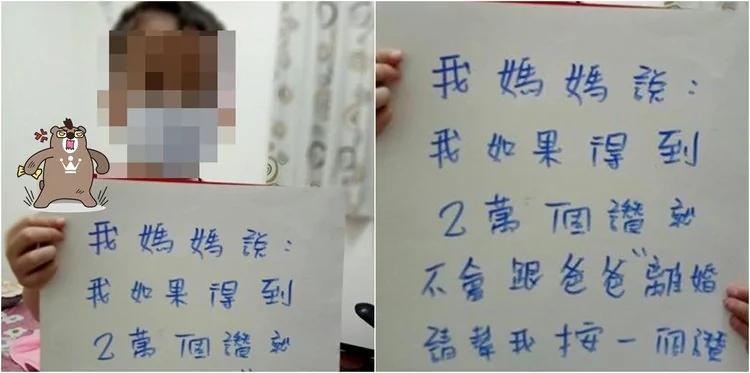 我媽媽說:
我如果得到
2萬個讚就
我媽媽說:
我如果得到
2萬個讚就
不會跟爸爸"離婚
請幫我按一個讚